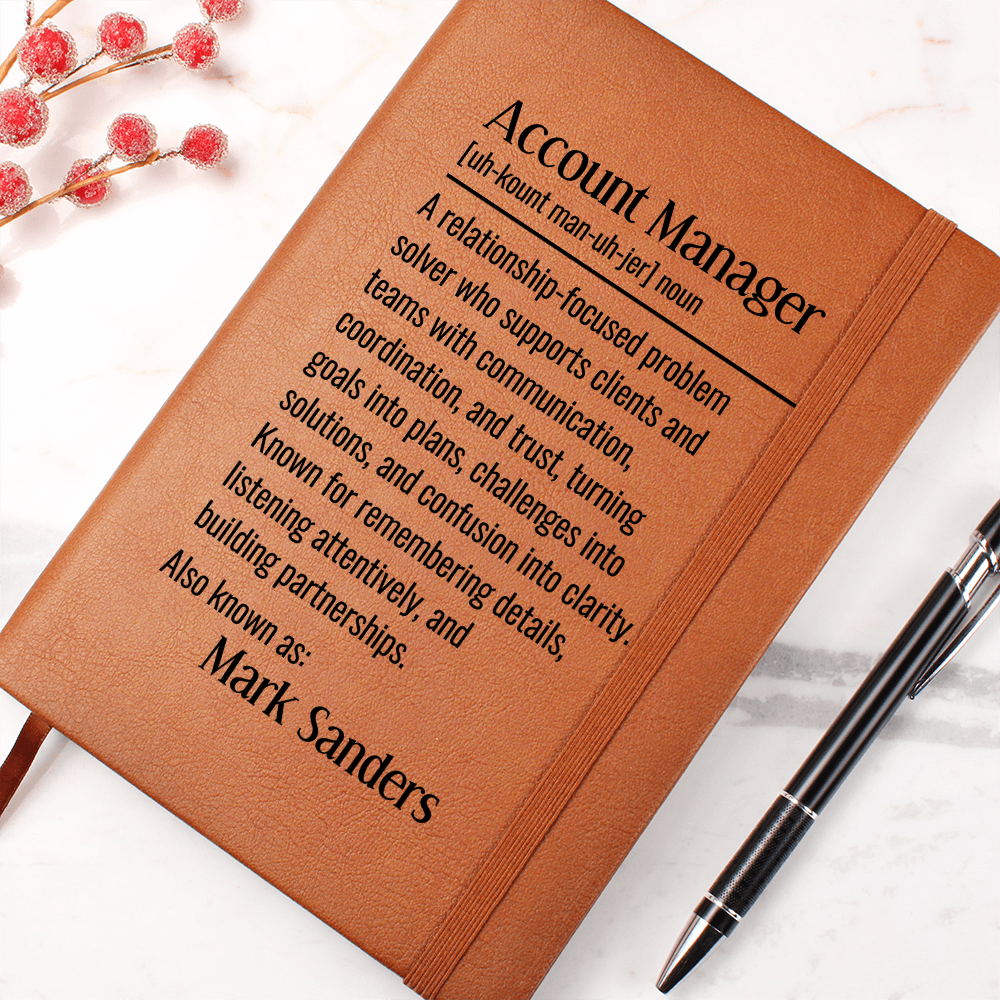 Account Manager
[uh-kount man-uh-jer] noun
A relationship-focused problem
solver who supports clients and
teams with communication,
coordination, and trust, turning
goals into plans, challenges into
solutions, and confusion into clarity.
Known for remembering details,
listening attentively, and
building partnerships.
Also known as:
Mark Sanders